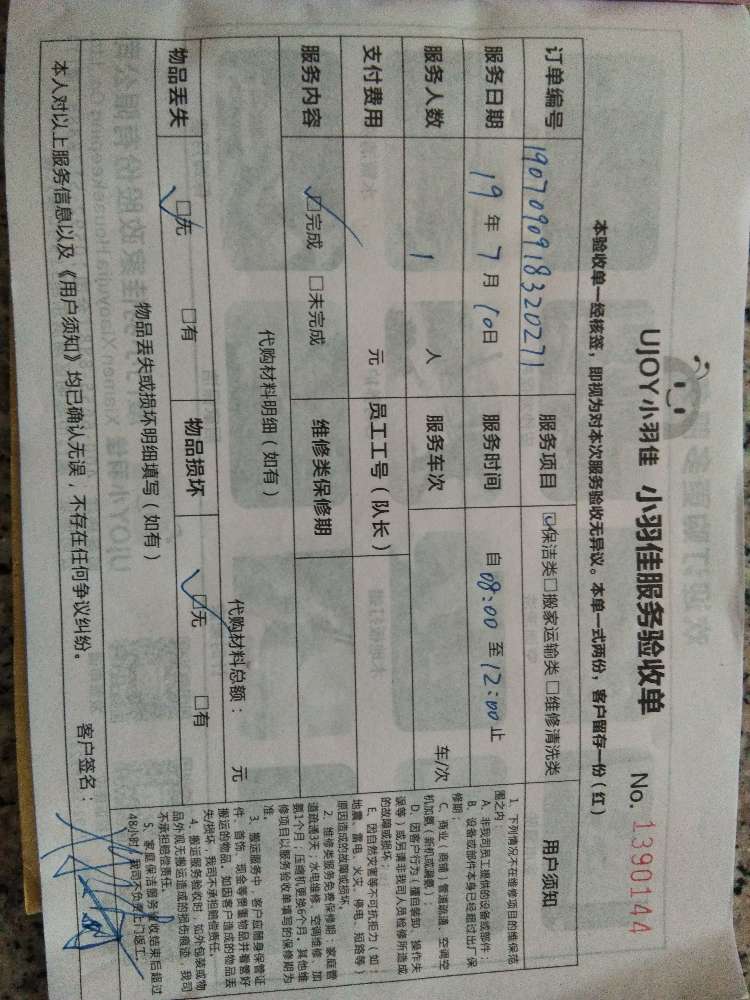 UJOY小羽佳 小羽佳服务验收单 No. 1390144
本验收单一经核签，即视为对本次服务验收无异议。本单一式两份，客户留存一份（红）
订单编号 190709091832027１ 服务项目 ☑保洁类□搬家运输类 □维修清洗类 用户须知
服务日期 19 年 7 月 10日 服务时间 自08:00 至12:00 止
服务人数 1 人 服务车次 车/次
支付费用 元 员工工号（队长）
服务内容 ☑完成 □未完成 维修类保修期
代购材料明细（如有） 代购材料总额： 元
物品丢失 ☑无 □有 物品损坏 ☑无 □有
物品丢失或损坏明细填写（如有）
1、下列情况不在维修项目的维保范
围之内：
A、非我司员工提供的设备或部件；
B、设备或部件本身已经超过出厂保
修期；
C、商业（商铺）管道疏通、空调空
机加氟（新机或漏氟）；
D、因客户行为（擅自装卸、操作失
误等）或另请非我司人员检修所造成
的故障或损坏；
E、因自然灾害等不可抗拒力（如：
地震、雷电、火灾、停电、短路等）
原因造成的故障或损坏。
2、维修类服务免费保修期：家庭管
道疏通3天；水电维修、空调维修、加
氨1个月，压缩机更换6个月。其他维
修项目以服务验收单填写的保修期为
准
3、搬运服务中，客户应随身保管证
件、首饰、现金等贵重物品并看管好
搬运的物品，如因客户造成的物品丢
失/损坏，我司不承担赔偿责任。
4、搬运服务验收时，如外包装或物
品外观无搬运造成的损伤痕迹，我司
不承担赔偿责任。
5、家庭保洁服务验收结束后超过
48小时，我司不负责上门返工。
本人对以上服务信息以及《用户须知》均已确认无误，不存在任何争议纠纷。 客户签名：